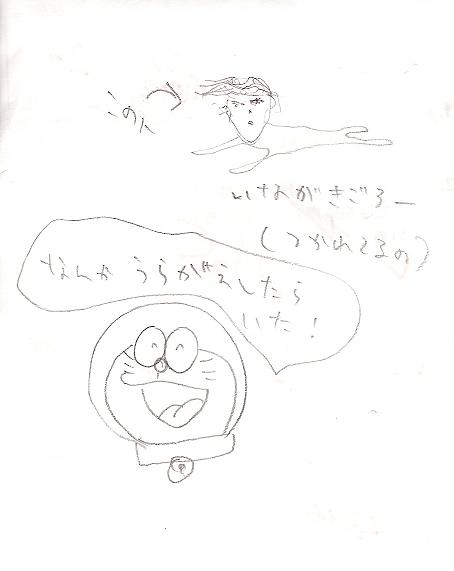 この人
いながきごろー
(つかれてるの)
なんか うらがえしたら
いた!